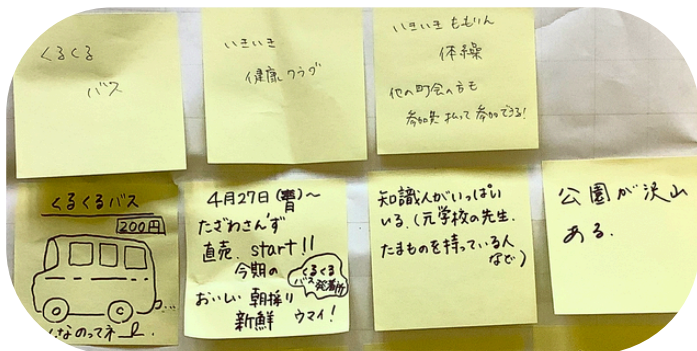 くるくる
バス
いきいき
健康クラブ
いきいき ももりん
体操
他の町会の方も
参加費払って参加できる!
くるくるバス
200円
なのってネ
4月27日(月)~
たざわさんず
直売、start!!
今期の
おいしい 朝採り
新鮮 ウマイ!
くるくる
バス発着所
知識人がいっぱい
いる。(元学校の先生、
たまものを持っている人
など)
公園が沢山
ある。